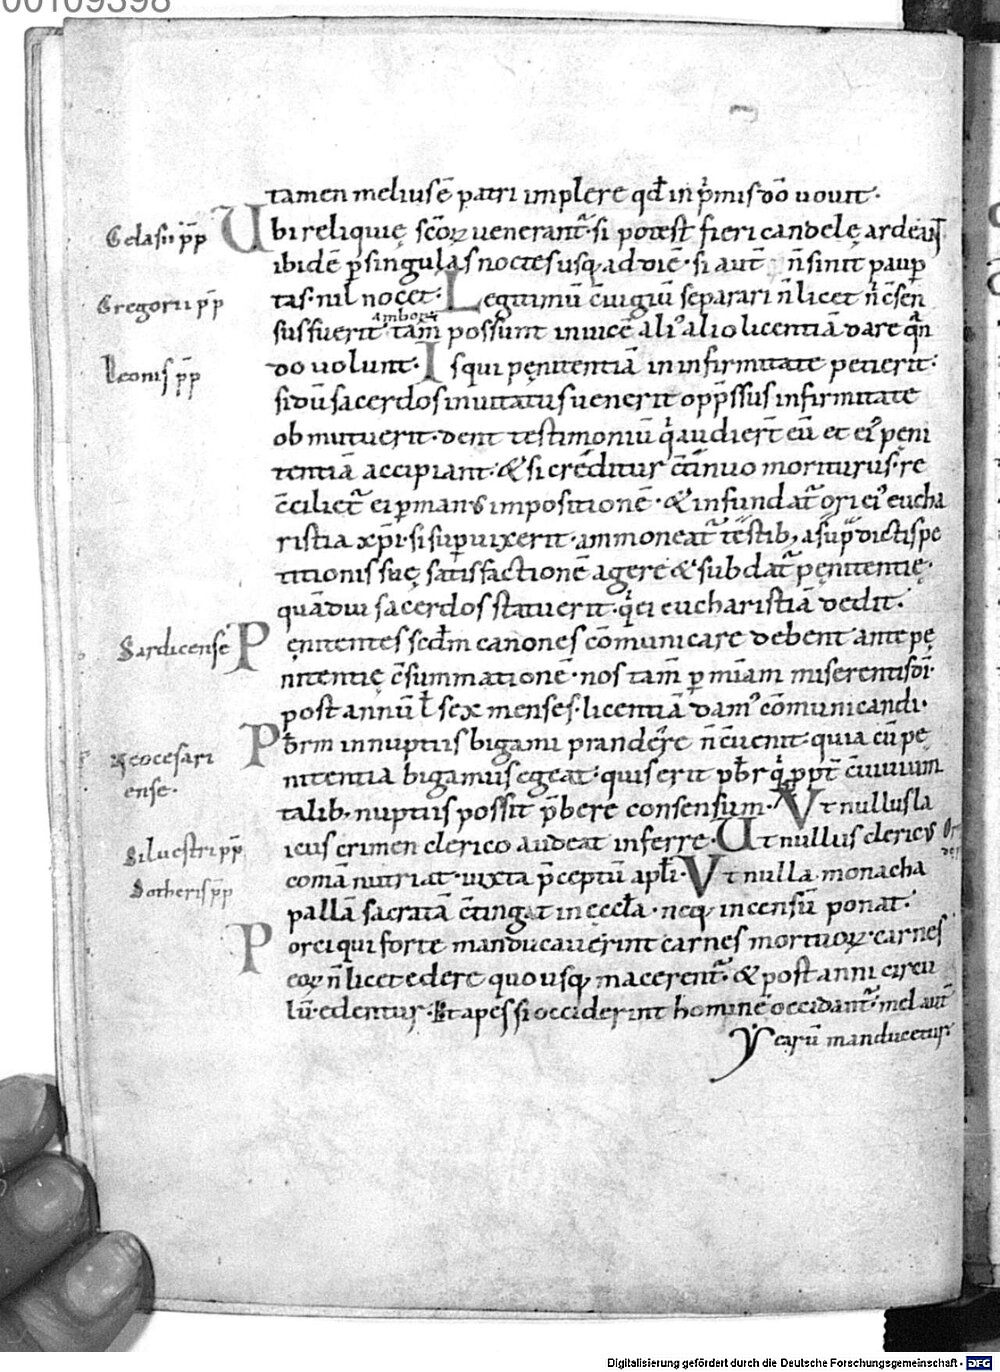 00109398
tamen meliusē patri implere qđ in p̄mis dō vovit·
Gelasii p̄p Ubi reliquię sc̄oꝝ venerant̄· si potest fieri candelę ardeant
ibidē ꝑ singulas noctes usq; ad diē· si aut̄ n̄ sinit paup
Gregorii p̄p tas· nil nocet· Legitimū c̄iugiū separari n̄ licet n̄ c̄sen
sus fuerit amboꝝ· tam̄ possunt invicē ali᾿ alio licentiā dare q̄n
Leonis p̄p do volunt· Is qui pęnitentiā in infirmitate petierit·
si dū sacerdos invitatus venerit opp̄ssus infirmitate
obmutuerit· dent testimoniū q̄ audiert̄ eū et ei᾿ peni
tentiā accipiant· & si creditur c̄tinuo moriturus· re
c̄ciliet̄ ei ꝑ manus impositionē· & infundat̄ ori ei᾿ eucha
ristia xp̄i· si sup̄vixerit· ammoneat̄ testib; a sup̄dictis pe
titionis suę satisfactionē agere & subdat̄ pęnitentię·
quādiu sacerdos statuerit· q̄ ei eucharistiā dedit·
Sardicense Pęnitentes scđm canones cōmunicare debent ante pę
nitentię c̄summationē· nos tam̄ ꝑ mīam miserentis dī
post annū ł sex menses· licentiā dam᾿ cōmunicandi·
Neocesari Pb̄rm in nuptiis bigami prandere n̄ c̄venit· quia cū pe
ense· nitentia bigamus egeat· quis erit pb̄r q̄ ꝓpt̄ c̄vivium
talib; nuptiis possit p̄bere consensum· Ut nullus la
Silvestri p̄p icus crimen clerico audeat inferre· Ut nullus clericus
Sotheris p̄p comā nutriat· iuxta p̄ceptū apłi· Ut nulla monacha
pallā sacratā c̄tingat in ęccła· neq; incensū ponat·
Porci qui forte manducaverint carnes mortuoꝝ· carnes
eoꝝ n̄ licet edere quousq; macerent̄· & post anni circu
lū edentur· Et apes si occiderint hominē occidant̄· mel aut̄
earū manducetur·
Digitalisierung gefördert durch die Deutsche Forschungsgemeinschaft - DFG